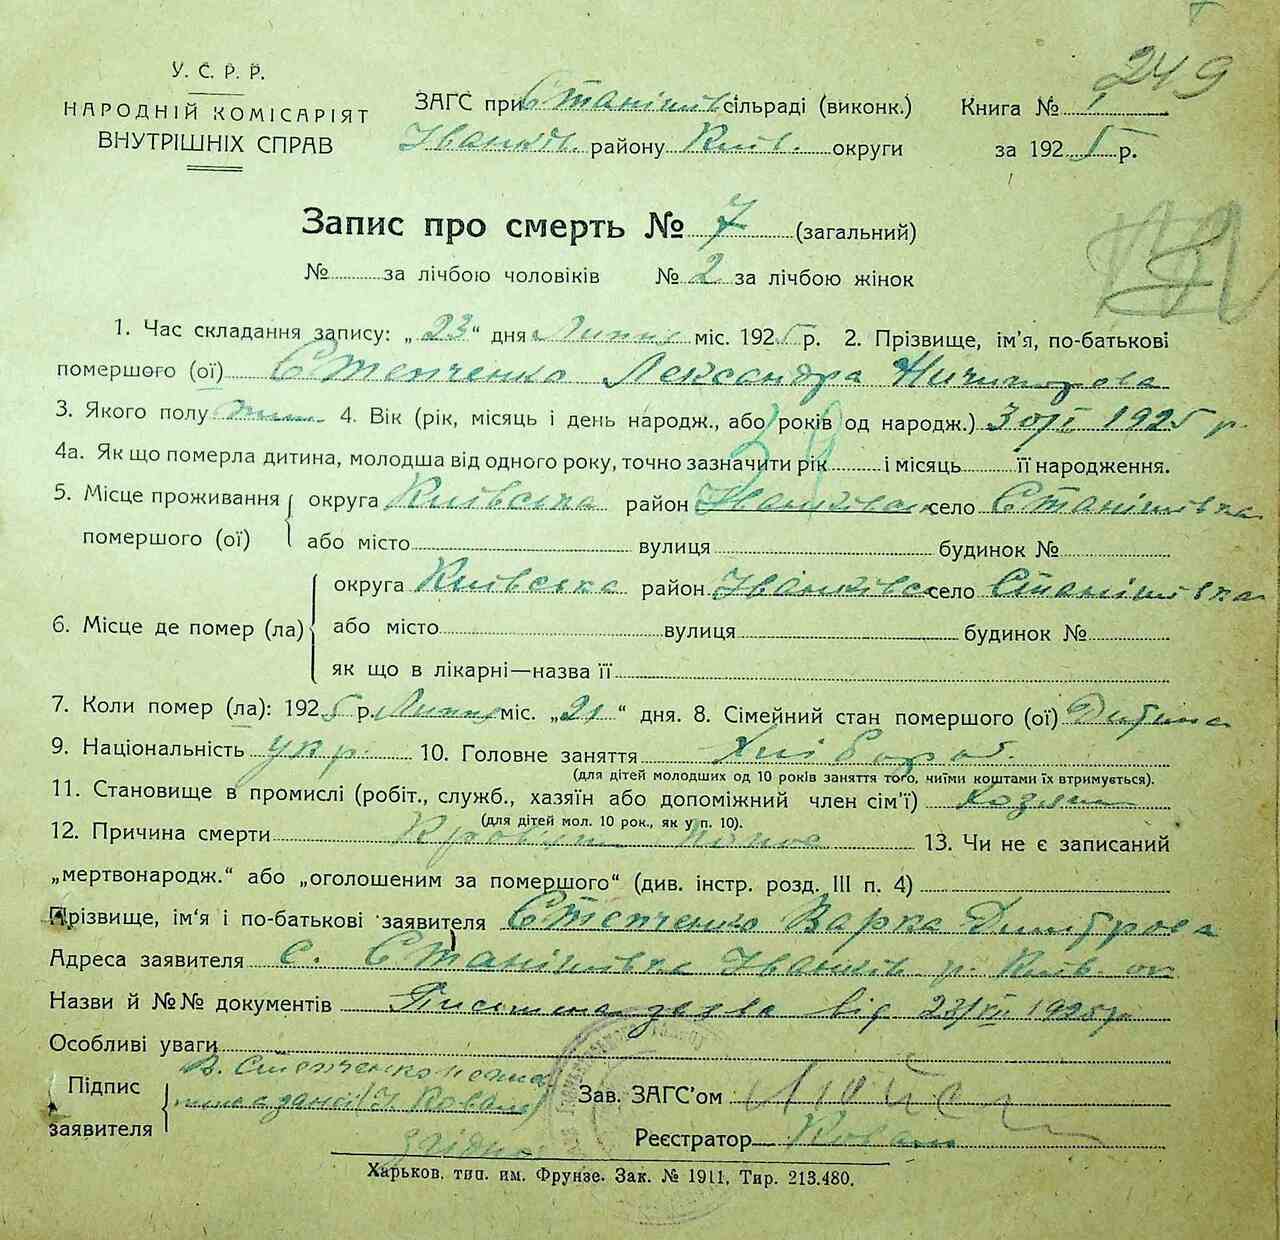 249
У. С. Р. Р.
НАРОДНІЙ КОМІСАРІЯТ
ВНУТРІШНІХ СПРАВ
ЗАГС при Станішів сільраді (виконк.)
Іванків. району Київ. округи
Книга № 1
за 1925 р.
Запис про смерть № 7 (загальний)
№ за лічбою чоловіків № 2 за лічбою жінок
1. Час складання запису: „23“ дня Липня міс. 1925 р. 2. Прізвище, ім'я, по-батькові
помершого (ої) Степченко Лександра Ничипорова
3. Якого полу жін. 4. Вік (рік, місяць і день народж., або років од народж.) 1925 р.
4а. Як що померла дитина, молодша від одного року, точно зазначити рік і місяць її народження.
5. Місце проживання помершого (ої) округа Київська район Іванківськ село Станішівка
або місто вулиця будинок №
6. Місце де помер (ла) округа Київська район Іванківсь село Станішівка
або місто вулиця будинок №
як що в лікарні—назва її
7. Коли помер (ла): 1925 р. Липня міс. „21“ дня. 8. Сімейний стан помершого (ої) Дитина
9. Національність укр. 10. Головне заняття Хлібороб.
(для дітей молодших од 10 років заняття того, чиїми коштами їх втримується).
11. Становище в промислі (робіт., служб., хазяїн або допоміжний член сім'ї) хозяин
(для дітей мол. 10 рок., як у п. 10).
12. Причина смерти Кровяний понос 13. Чи не є записаний
„мертвонародж.“ або „оголошеним за помершого“ (див. інстр. розд. III п. 4)
Прізвище, ім'я і по-батькові заявителя Степченко Варка Дмитрова
Адреса заявителя с. Станішівка Іванків. р. Київ. ок
Назви й №№ документів Письмена заява від 23/VII 1925 р
Особливі уваги
Підпис заявителя В. Степченко
Ковал
Згідно
Зав. ЗАГС'ом
Реєстратор Ковал
Харьков. тип. им. Фрунзе. Зак. № 1911, Тир. 213.480.